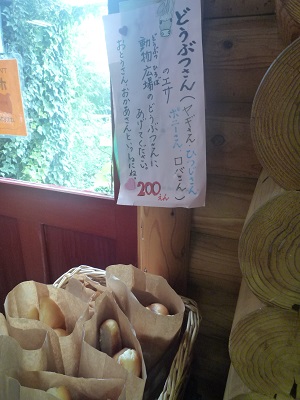 どうぶつさん(ヤギさん ひつじさん
ポニーさん ロバさん)
のエサ
どうぶつ ひろば
動物広場のどうぶつさんに
あげてください
おとうさん、おかあさんといっしょにね
200えん